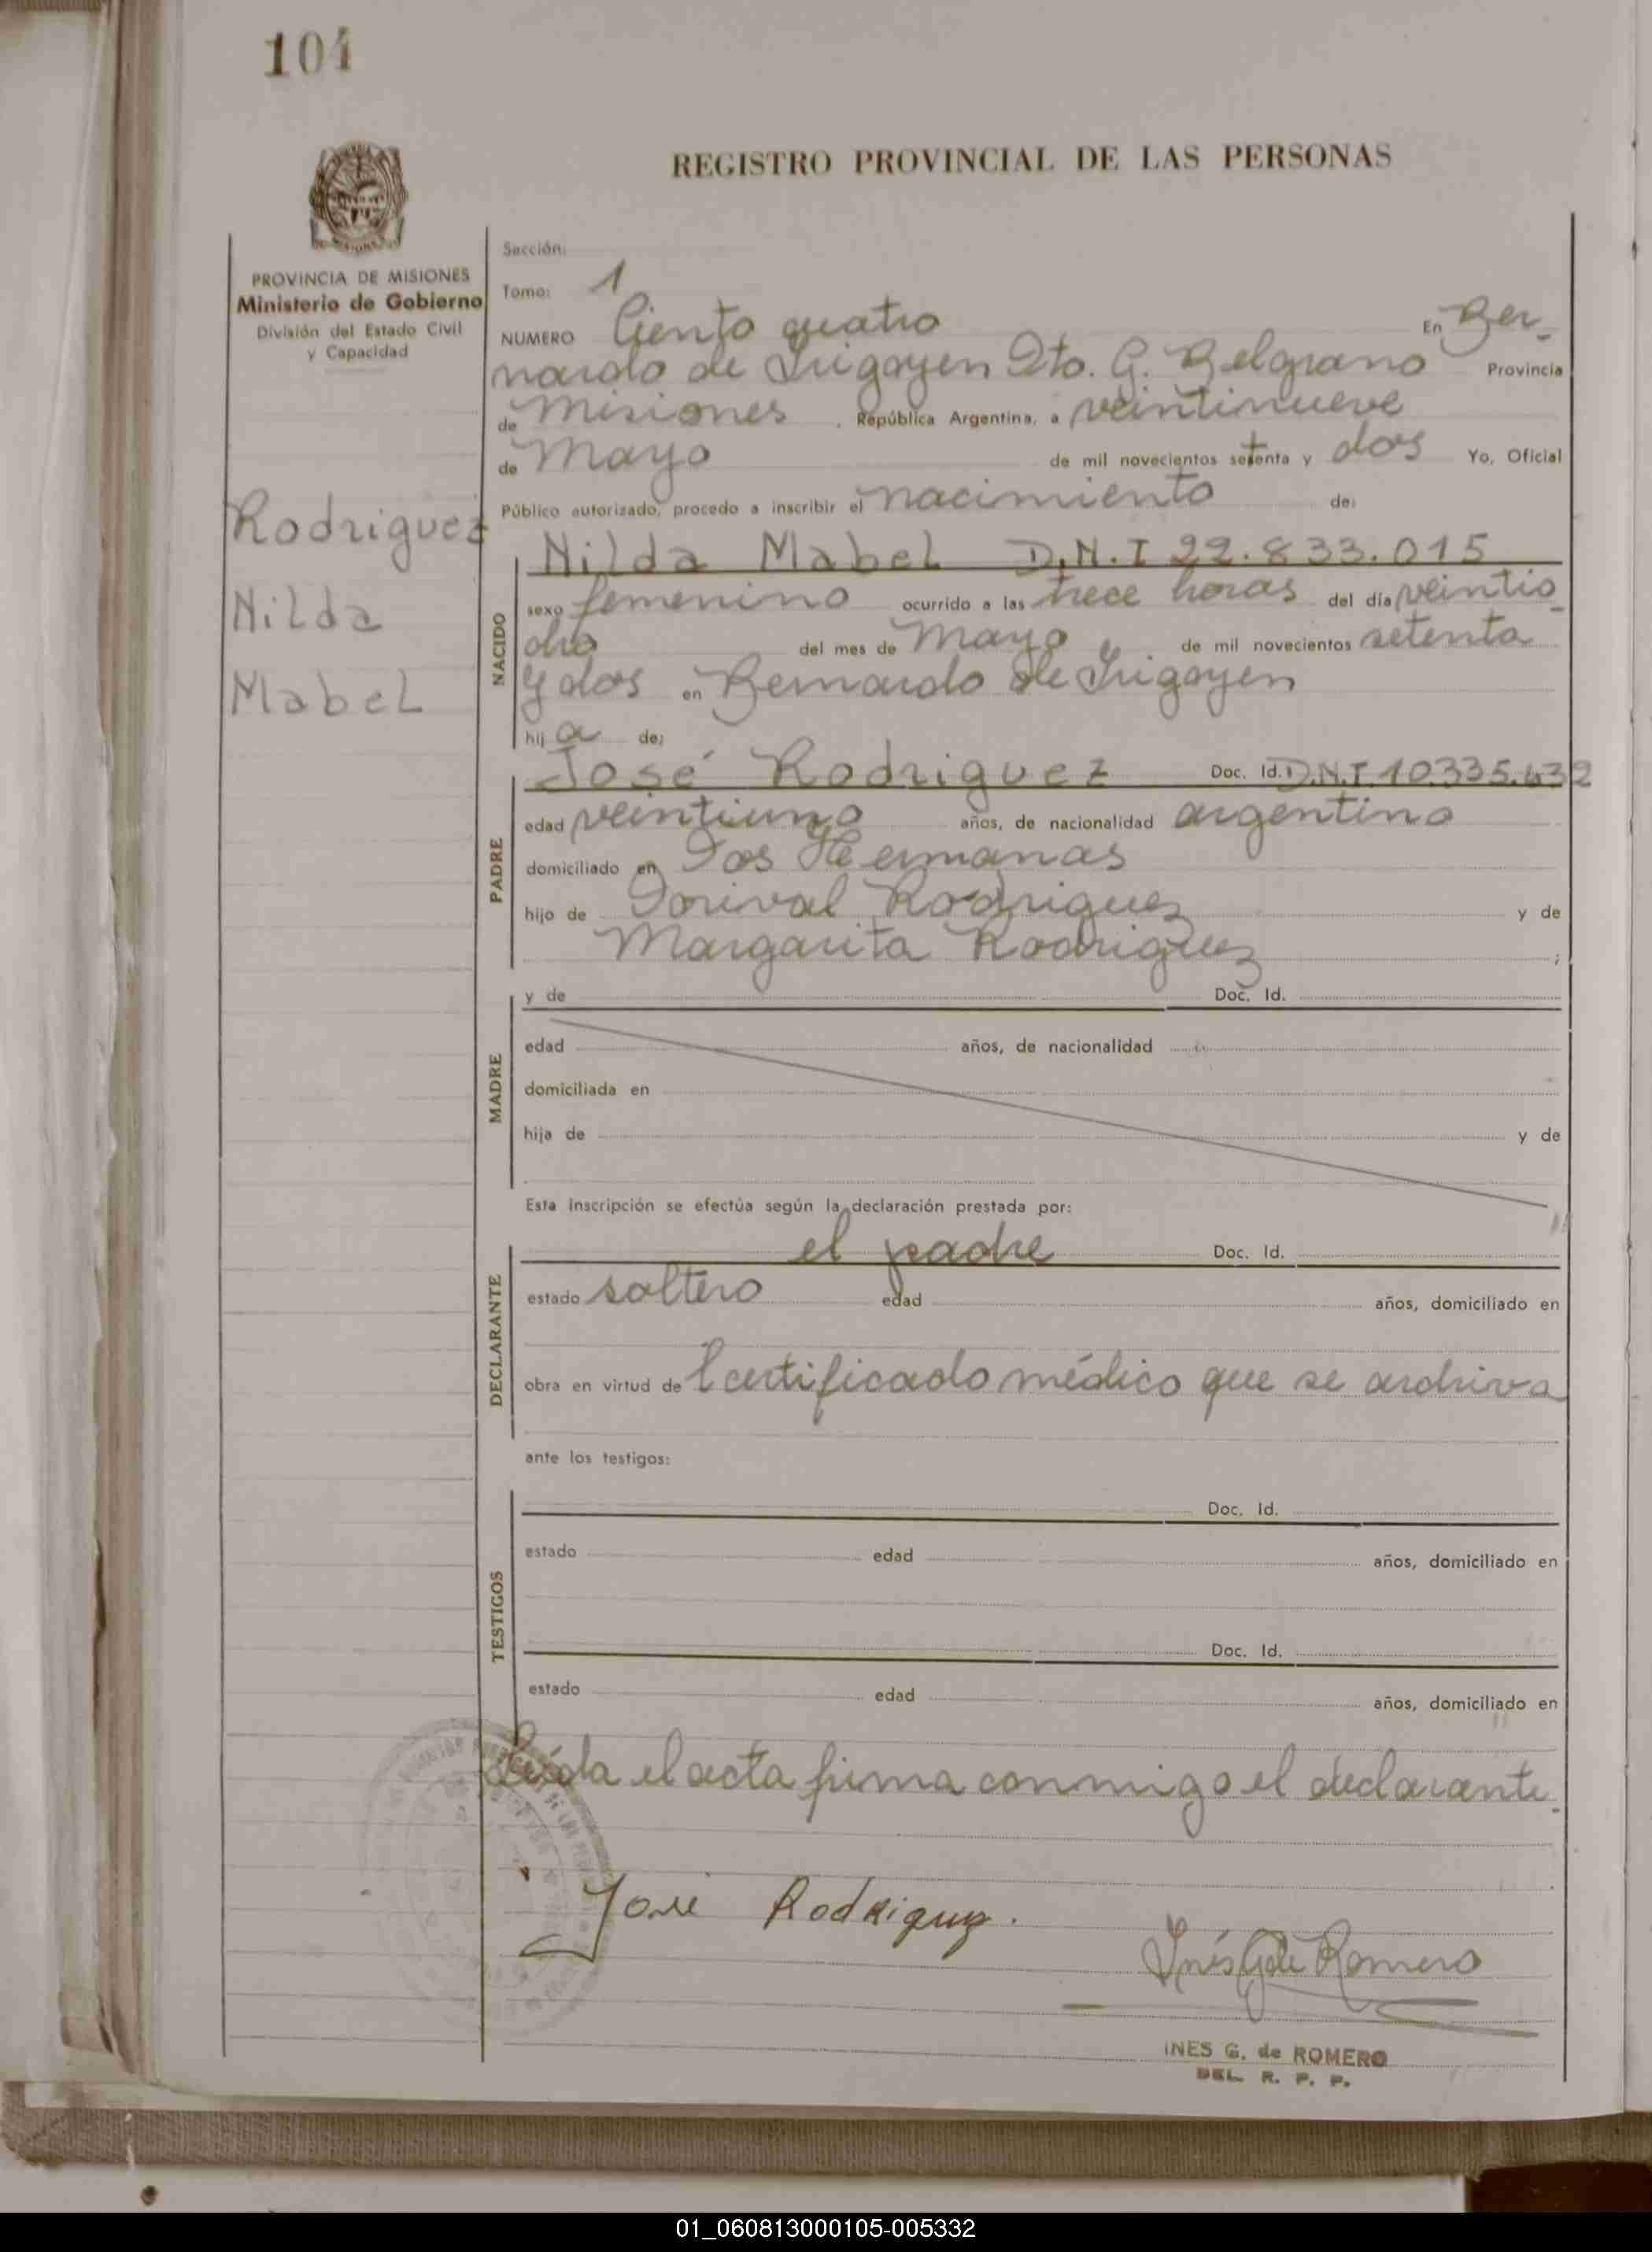 104
REGISTRO PROVINCIAL DE LAS PERSONAS
PROVINCIA DE MISIONES
Ministerio de Gobierno
División del Estado Civil
y Capacidad
Sección:
Tomo: 1
NUMERO Ciento quatro En Ber-
nardo de Irigoyen Dto. G. Belgrano Provincia
de Misiones , República Argentina, a veintinueve
de Mayo de mil novecientos setenta y dos Yo, Oficial
Público autorizado, procedo a inscribir el nacimiento de:
Rodriguez
Nilda
Mabel
NACIDO
Nilda Mabel D.N.I 22.833.015
sexo femenino ocurrido a las trece horas del día veintio_
cho del mes de Mayo de mil novecientos setenta
y dos en Bernardo de Irigoyen
hij a de:
PADRE
José Rodriguez Doc. Id. D.N.I. 10.335.632
edad veintiuno años, de nacionalidad argentino
domiciliado en Dos Hermanas
hijo de Dorival Rodriguez y de
Margarita Rodriguez ;
MADRE
y de Doc. Id.
edad años, de nacionalidad
domiciliada en
hija de y de
Esta inscripción se efectúa según la declaración prestada por:
DECLARANTE
el padre Doc. Id.
estado soltero edad años, domiciliado en
obra en virtud de l certificado médico que se archiva
ante los testigos:
TESTIGOS
Doc. Id.
estado edad años, domiciliado en
Doc. Id.
estado edad años, domiciliado en
Leída el acta firma conmigo el declarante.
José Rodriguez.
Inés G de Romero
INES G. de ROMERO
DEL. R. P. P.
01_060813000105-005332